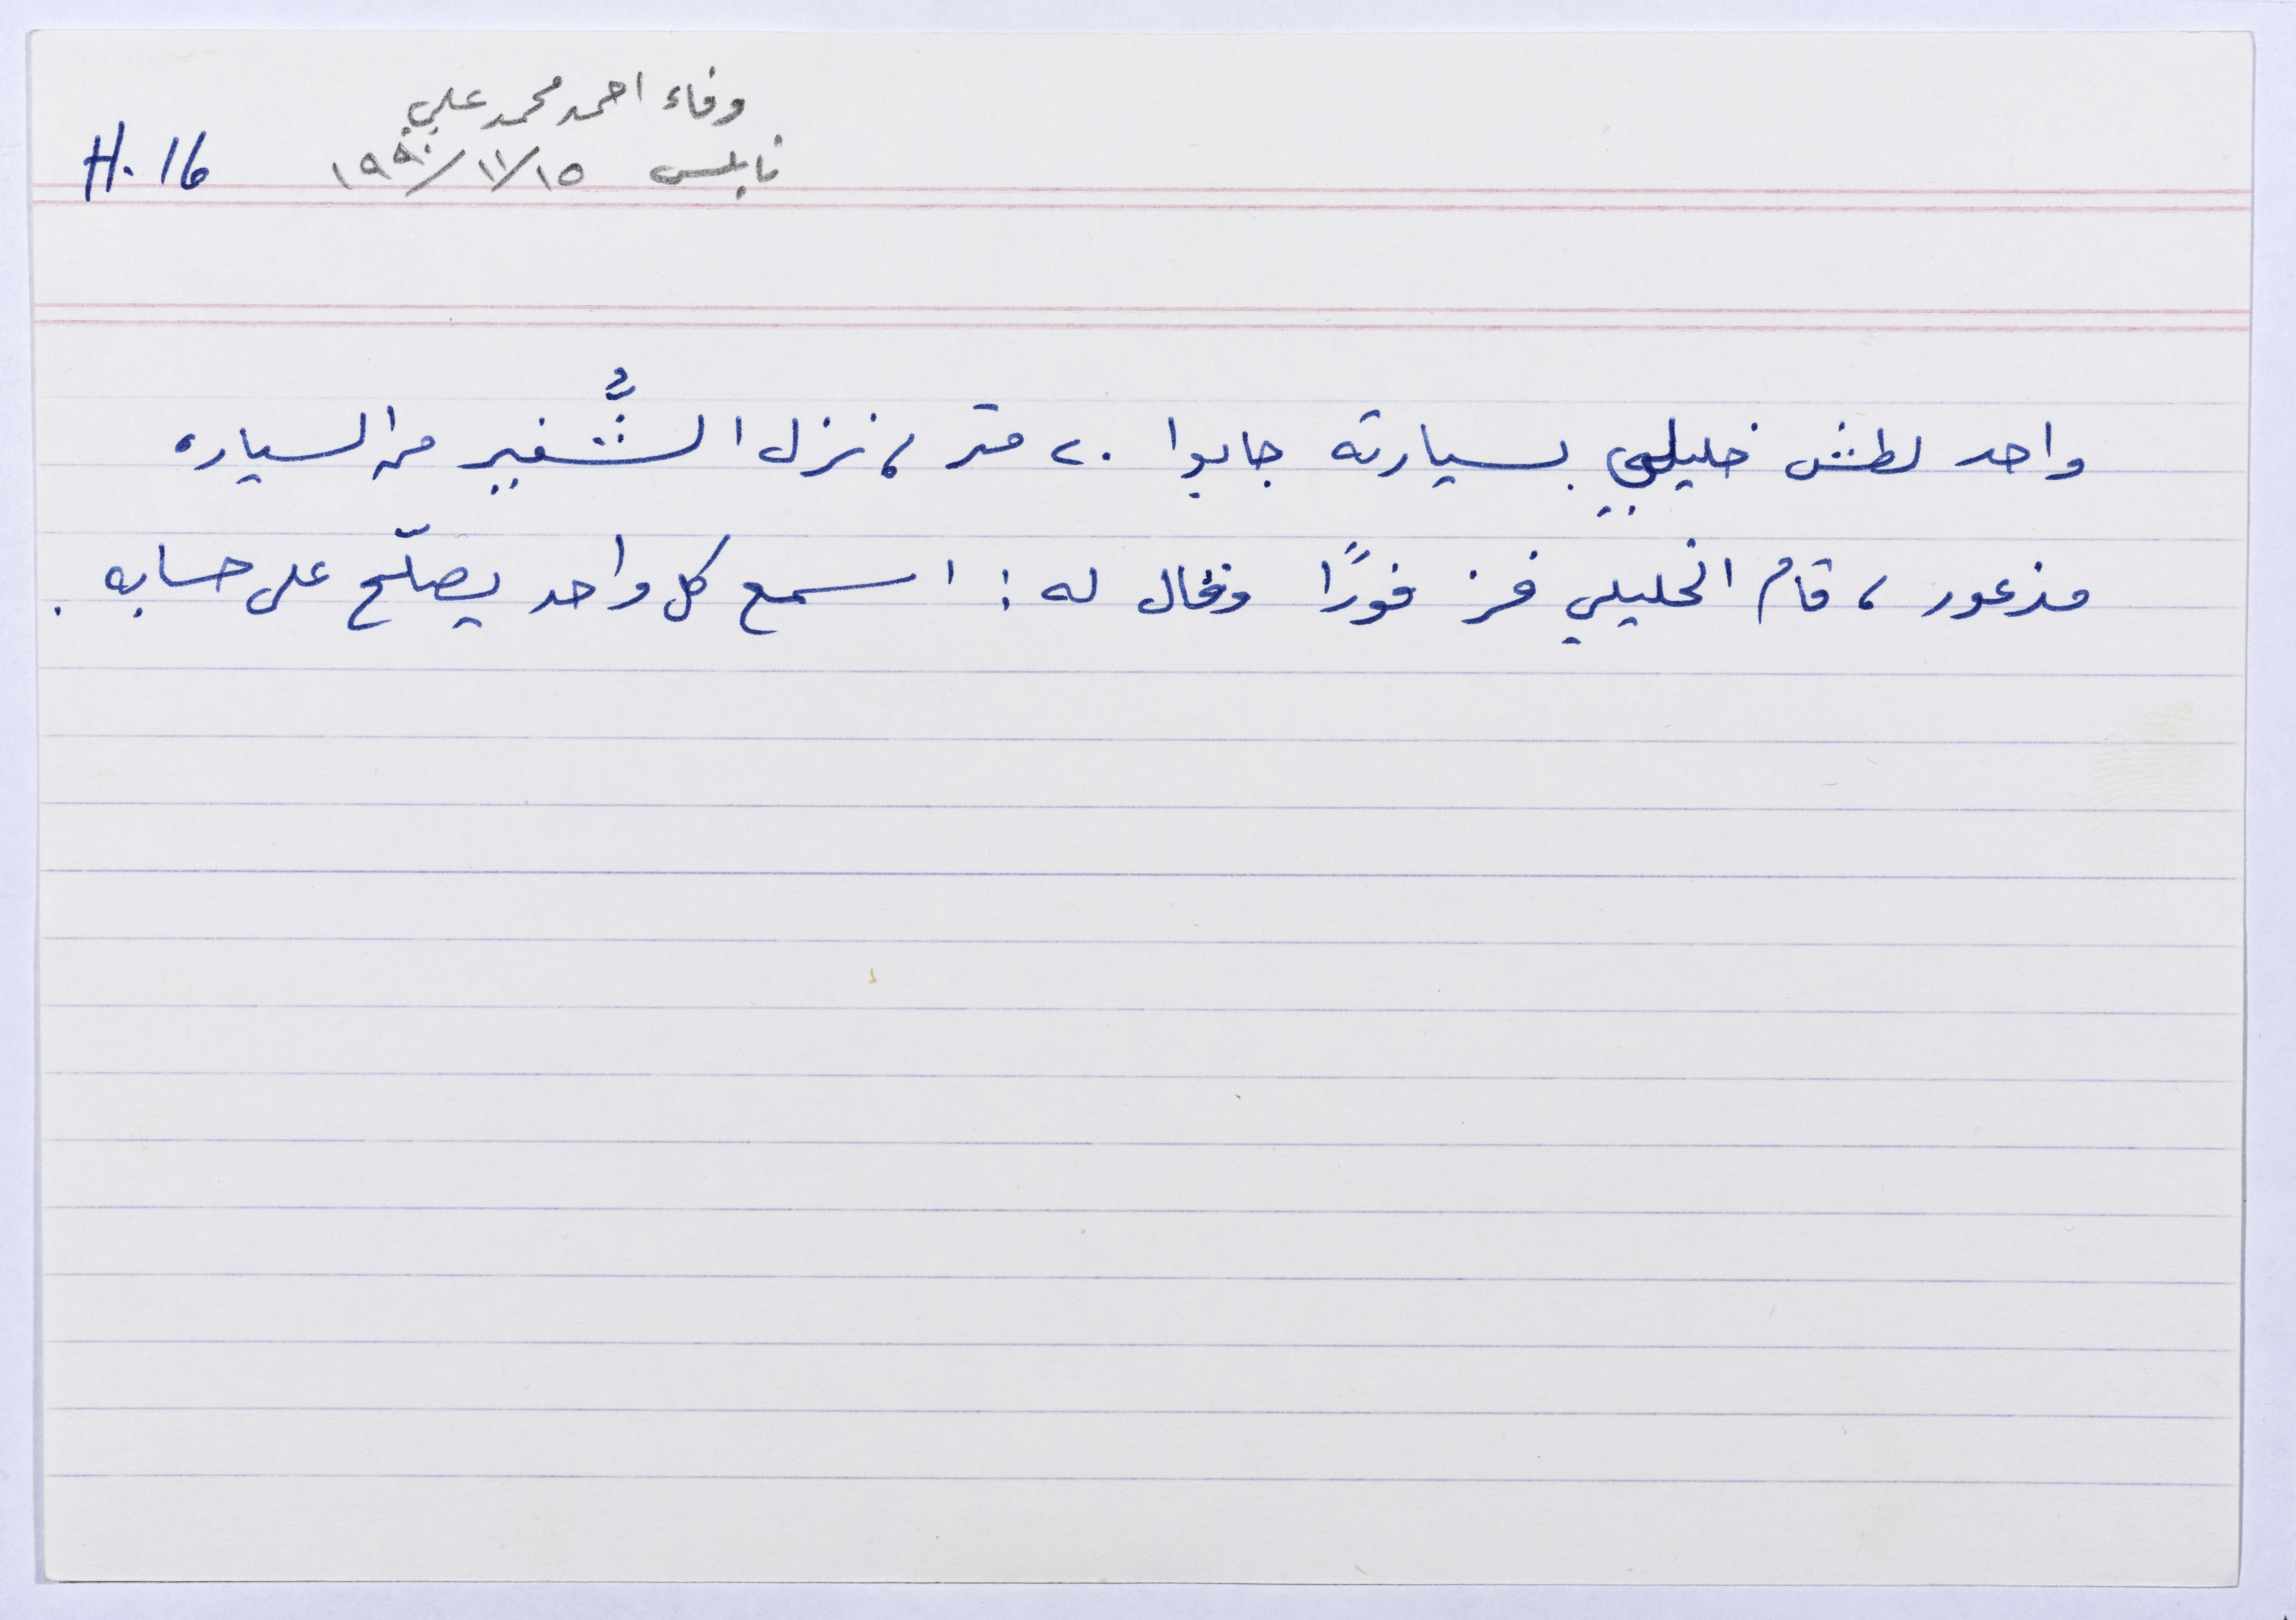 وفاء احمد محمد علي
نابلس ١٥/١١/١٩٩٠
H. 16
واحد لطش خليلي بسيارته جابوا ٢٠ متر، نزل الشُّفير من السياره
مذعور، قام الخليلي فز فورًا وقال له: اسمع كل واحد يصلّح على حسابه.